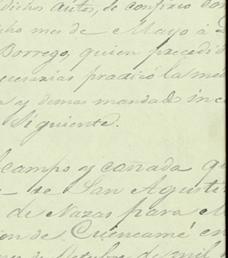 dichos autos, se confirió con
cho mes de Mayo á D
Borrego, quien precedid
ecesarias practicó la me
a y demas mandado inc
Siguiente.
campo y cañada qu
de San Agusti
de Nazas para el
on de Cuencamé en
de Octubre de mil